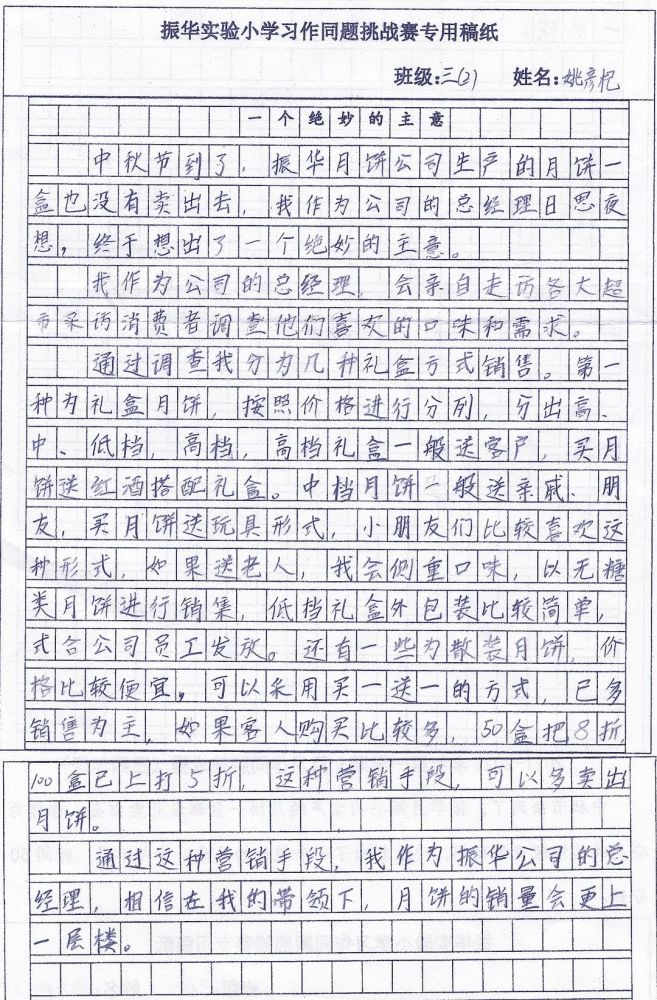 振华实验小学习作同题挑战赛专用稿纸
班级:三(2) 姓名:姚彦杞
一个绝妙的主意
中秋节到了，振华月饼公司生产的月饼一
盒也没有卖出去，我作为公司的总经理日思夜
想，终于想出了一个绝妙的主意。
我作为公司的总经理，会亲自走访各大超
市采访消费者调查他们喜欢的口味和需求。
通过调查我分为几种礼盒方式销售。第一
种为礼盒月饼，按照价格进行分列，分出高、
中、低档，高档，高档礼盒一般送客户，买月
饼送红酒搭配礼盒。中档月饼一般送亲戚、朋
友，买月饼送玩具形式，小朋友们比较喜欢这
种形式，如果送老人，我会侧重口味，以无糖
类月饼进行销集，低档礼盒外包装比较简单，
式合公司员工发放。还有一些为散装月饼，价
格比较便宜，可以采用买一送一的方式，已多
销售为主，如果客人购买比较多，50盒把8折，
100盒已上打5折，这种营销手段，可以多卖出
月饼。
通过这种营销手段，我作为振华公司的总
经理，相信在我的带领下，月饼的销量会更上
一层楼。